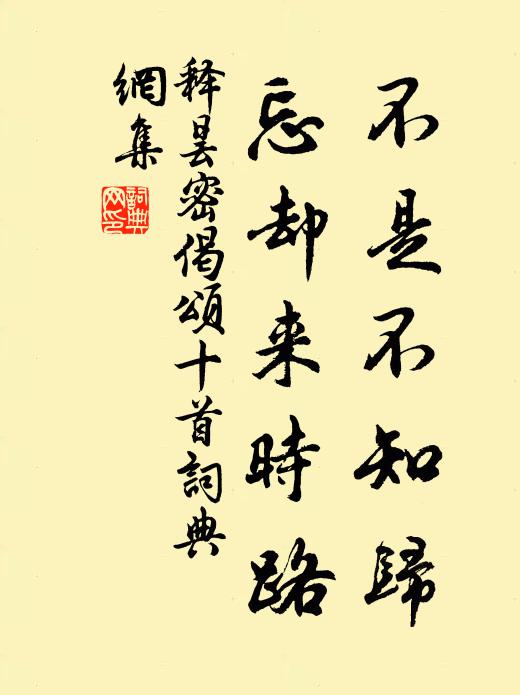 不是不知歸
忘却来時路
释昙密偈頌十首詞典
網集
詞典
网印